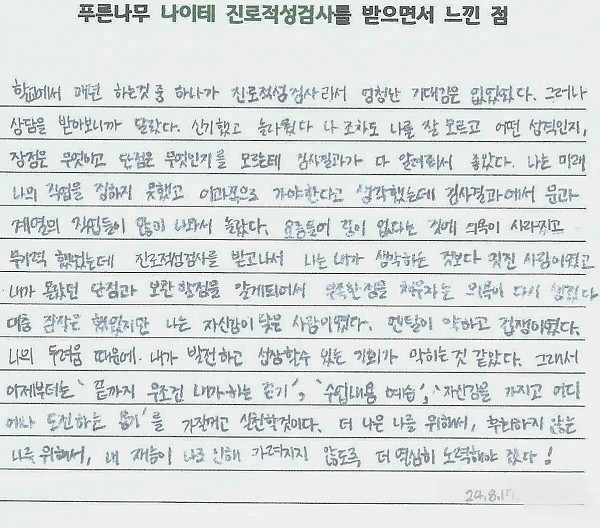 푸른나무 나이테 진로적성검사를 받으면서 느낀 점
학교에서 매년 하는것 중 하나가 진로적성검사라서 엄청난 기대감은 없었었다. 그러나
상담을 받아보니까 달랐다. 신기했고 놀라웠다 나 조차도 나를 잘 모르고 어떤 성격인지,
장점은 무엇이고 단점은 무엇인지를 모르는데 검사결과가 다 알려줘서 좋았다. 나는 미래
나의 직업을 정하지 못했고 이과쪽으로 가야한다고 생각했는데 검사결과에서 문과
계열의 직업들이 많이 나와서 놀랐다. 요즘들어 꿈이 없다는 것에 의욕이 사라지고
무기력 했었는데 진로적성검사를 받고나서 나는 내가 생각하는 것보다 멋진 사람이였고
내가 몰랐던 단점과 보완할점을 알게되어서 부족한점을 채우자는 의욕이 다시 생겼다
대충 짐작은 했었지만 나는 자신감이 낮은 사람이였다. 멘탈이 약하고 겁쟁이였다.
나의 두려움 때문에 내가 발전하고 성장할수 있는 기회가 막히는것 같았다. 그래서
이제부터는 '끝까지 무조건 내가 하는 끈기', '수업내용 예습', '자신감을 가지고 어디
에나 도전하는 용기'를 가질거고 실천할것이다. 더 나은 나를 위해서, 후회하지 않는
나를 위해서, 내 재능이 나로 인해 가려지지 않도록 더 열심히 노력해야 겠다!
24.8.17.